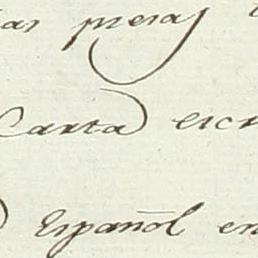 las presas
Carta escr
Español en